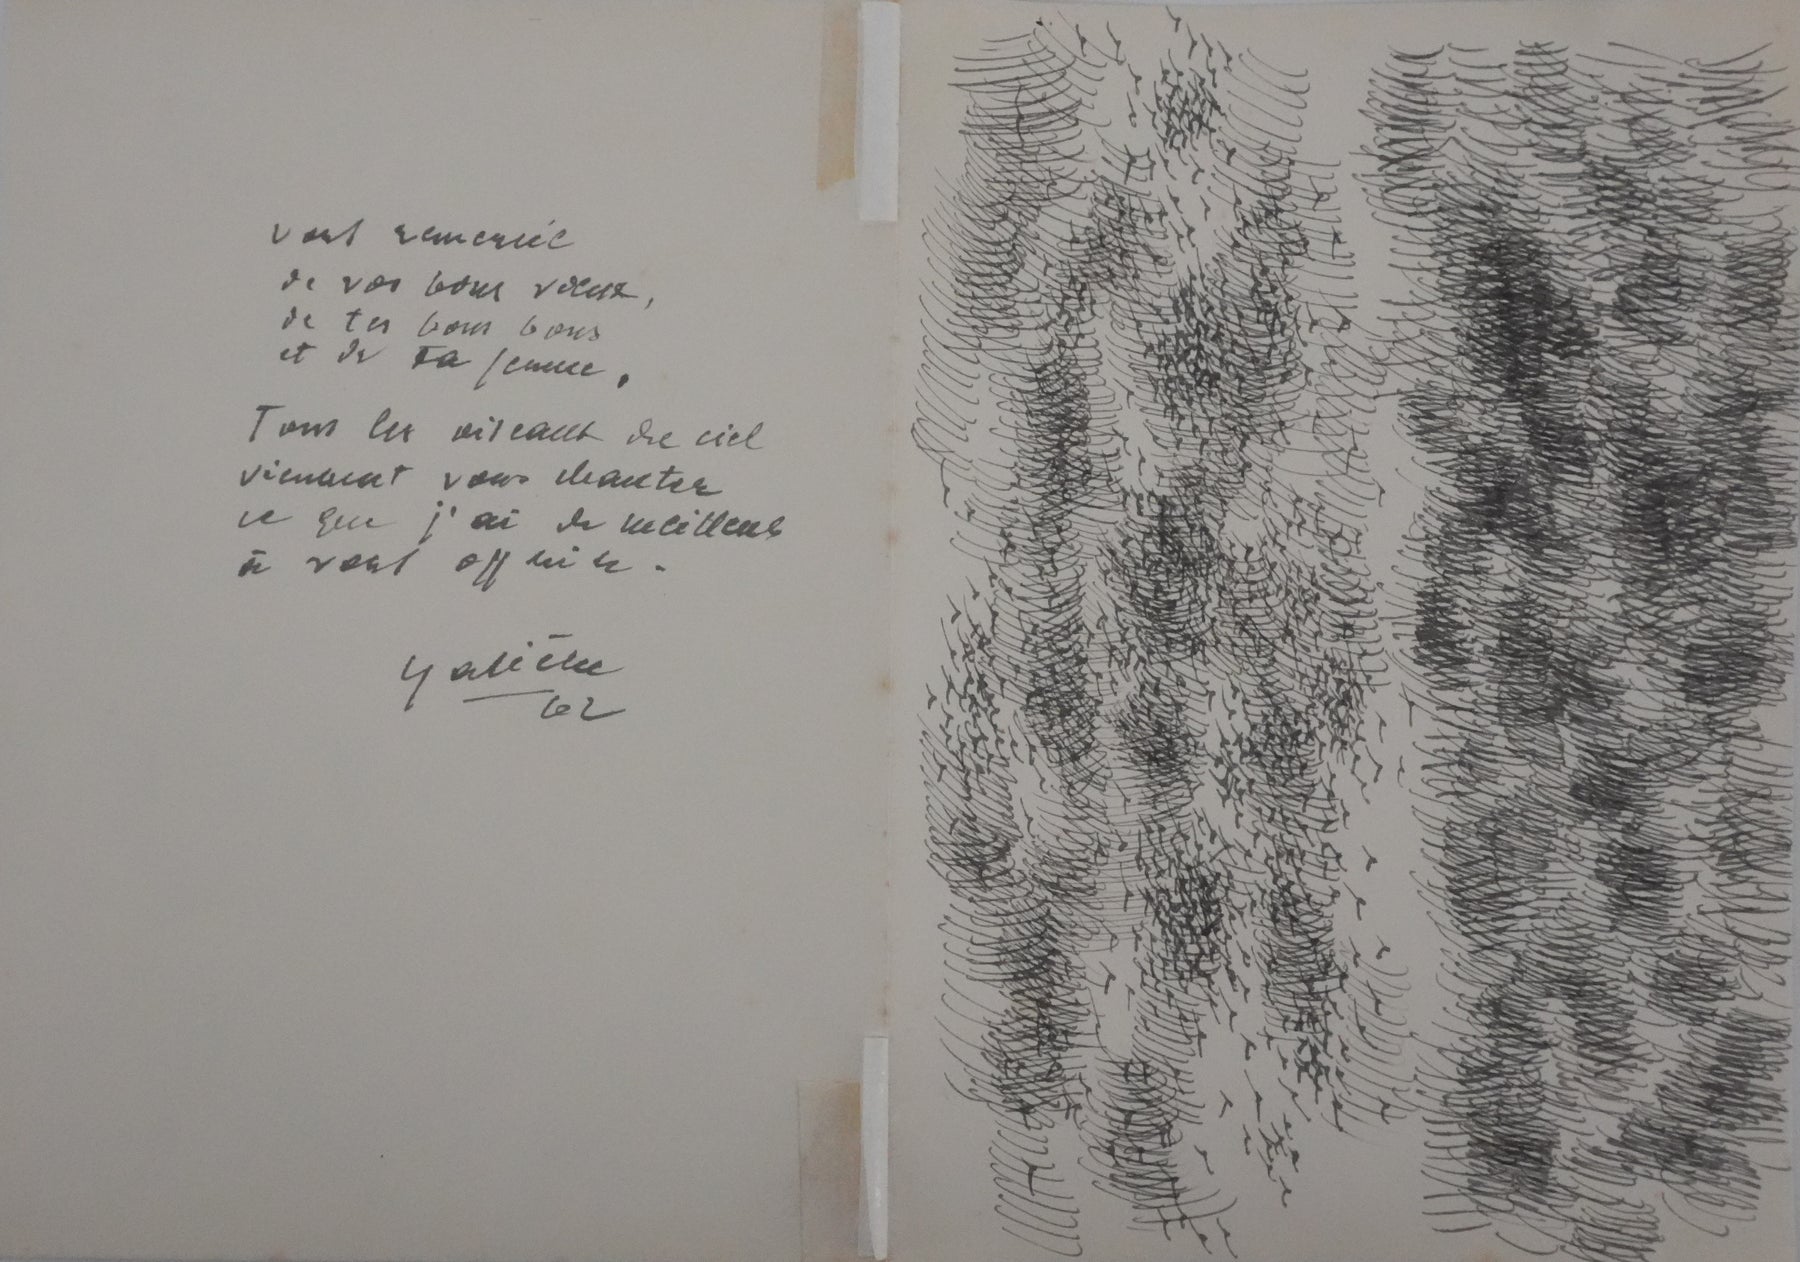 vous remercie
de vos bons vœux,
de tes bons bons
et de ta femme.
Tous les oiseaux du ciel
viennent vous chanter
ce que j'ai de meilleur
à vous offrir.
Yolièke
62